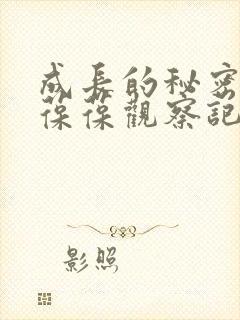 成長的秘密
葆葆觀察記
影照